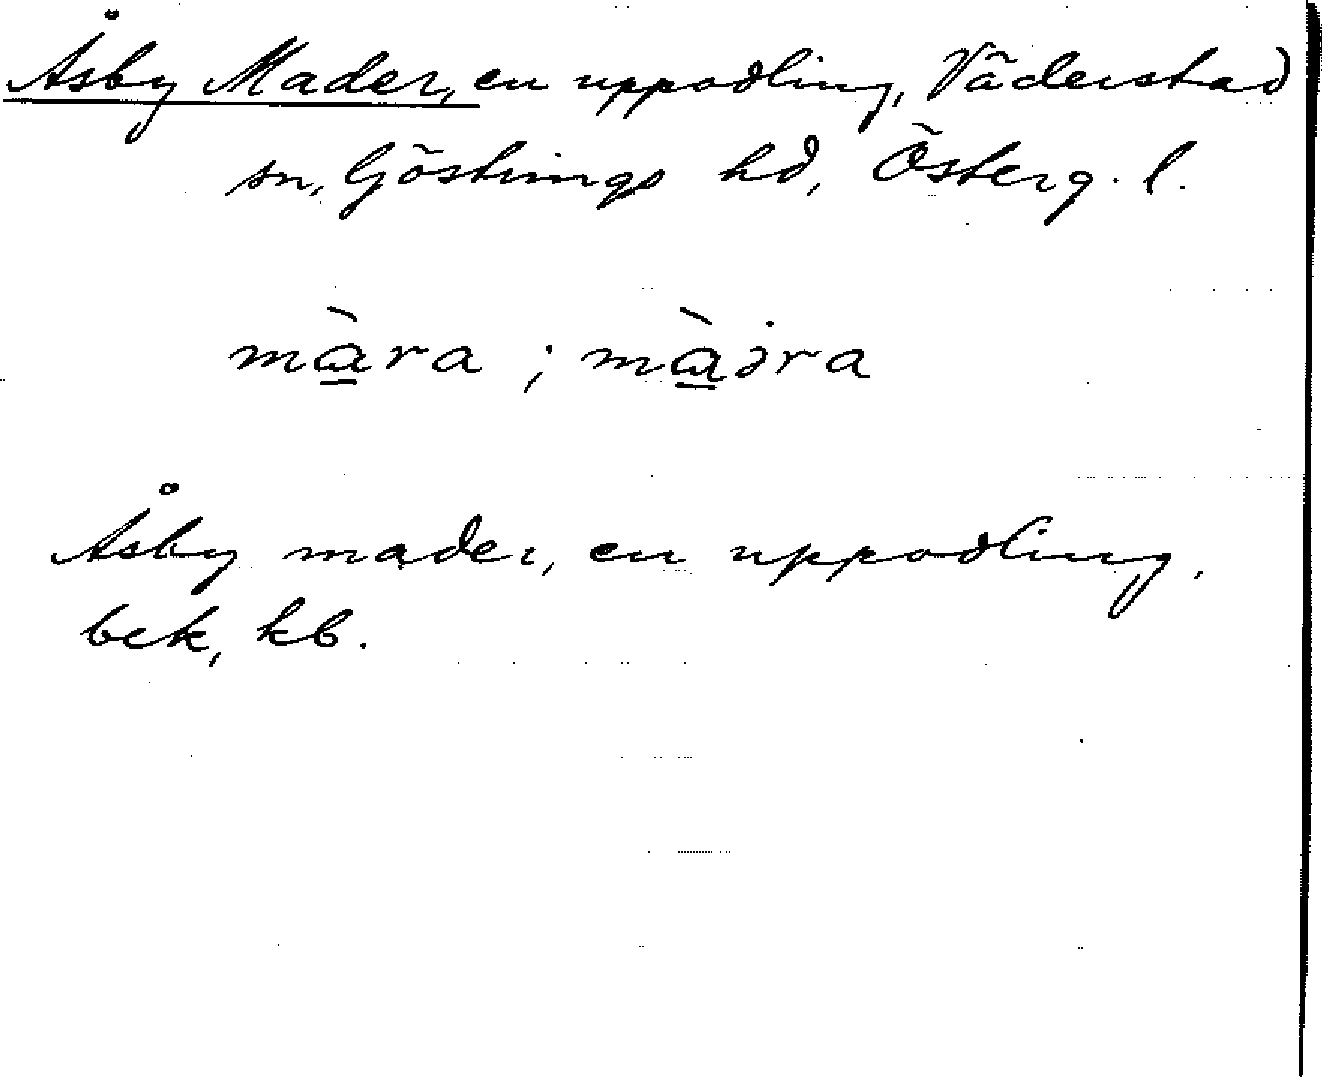 Åsby Mader, en uppodling, Väderstad
sn, Göstrings hd, Österg. l.
màra; màdra
Åsby mader, en uppodling,
bek, kb.